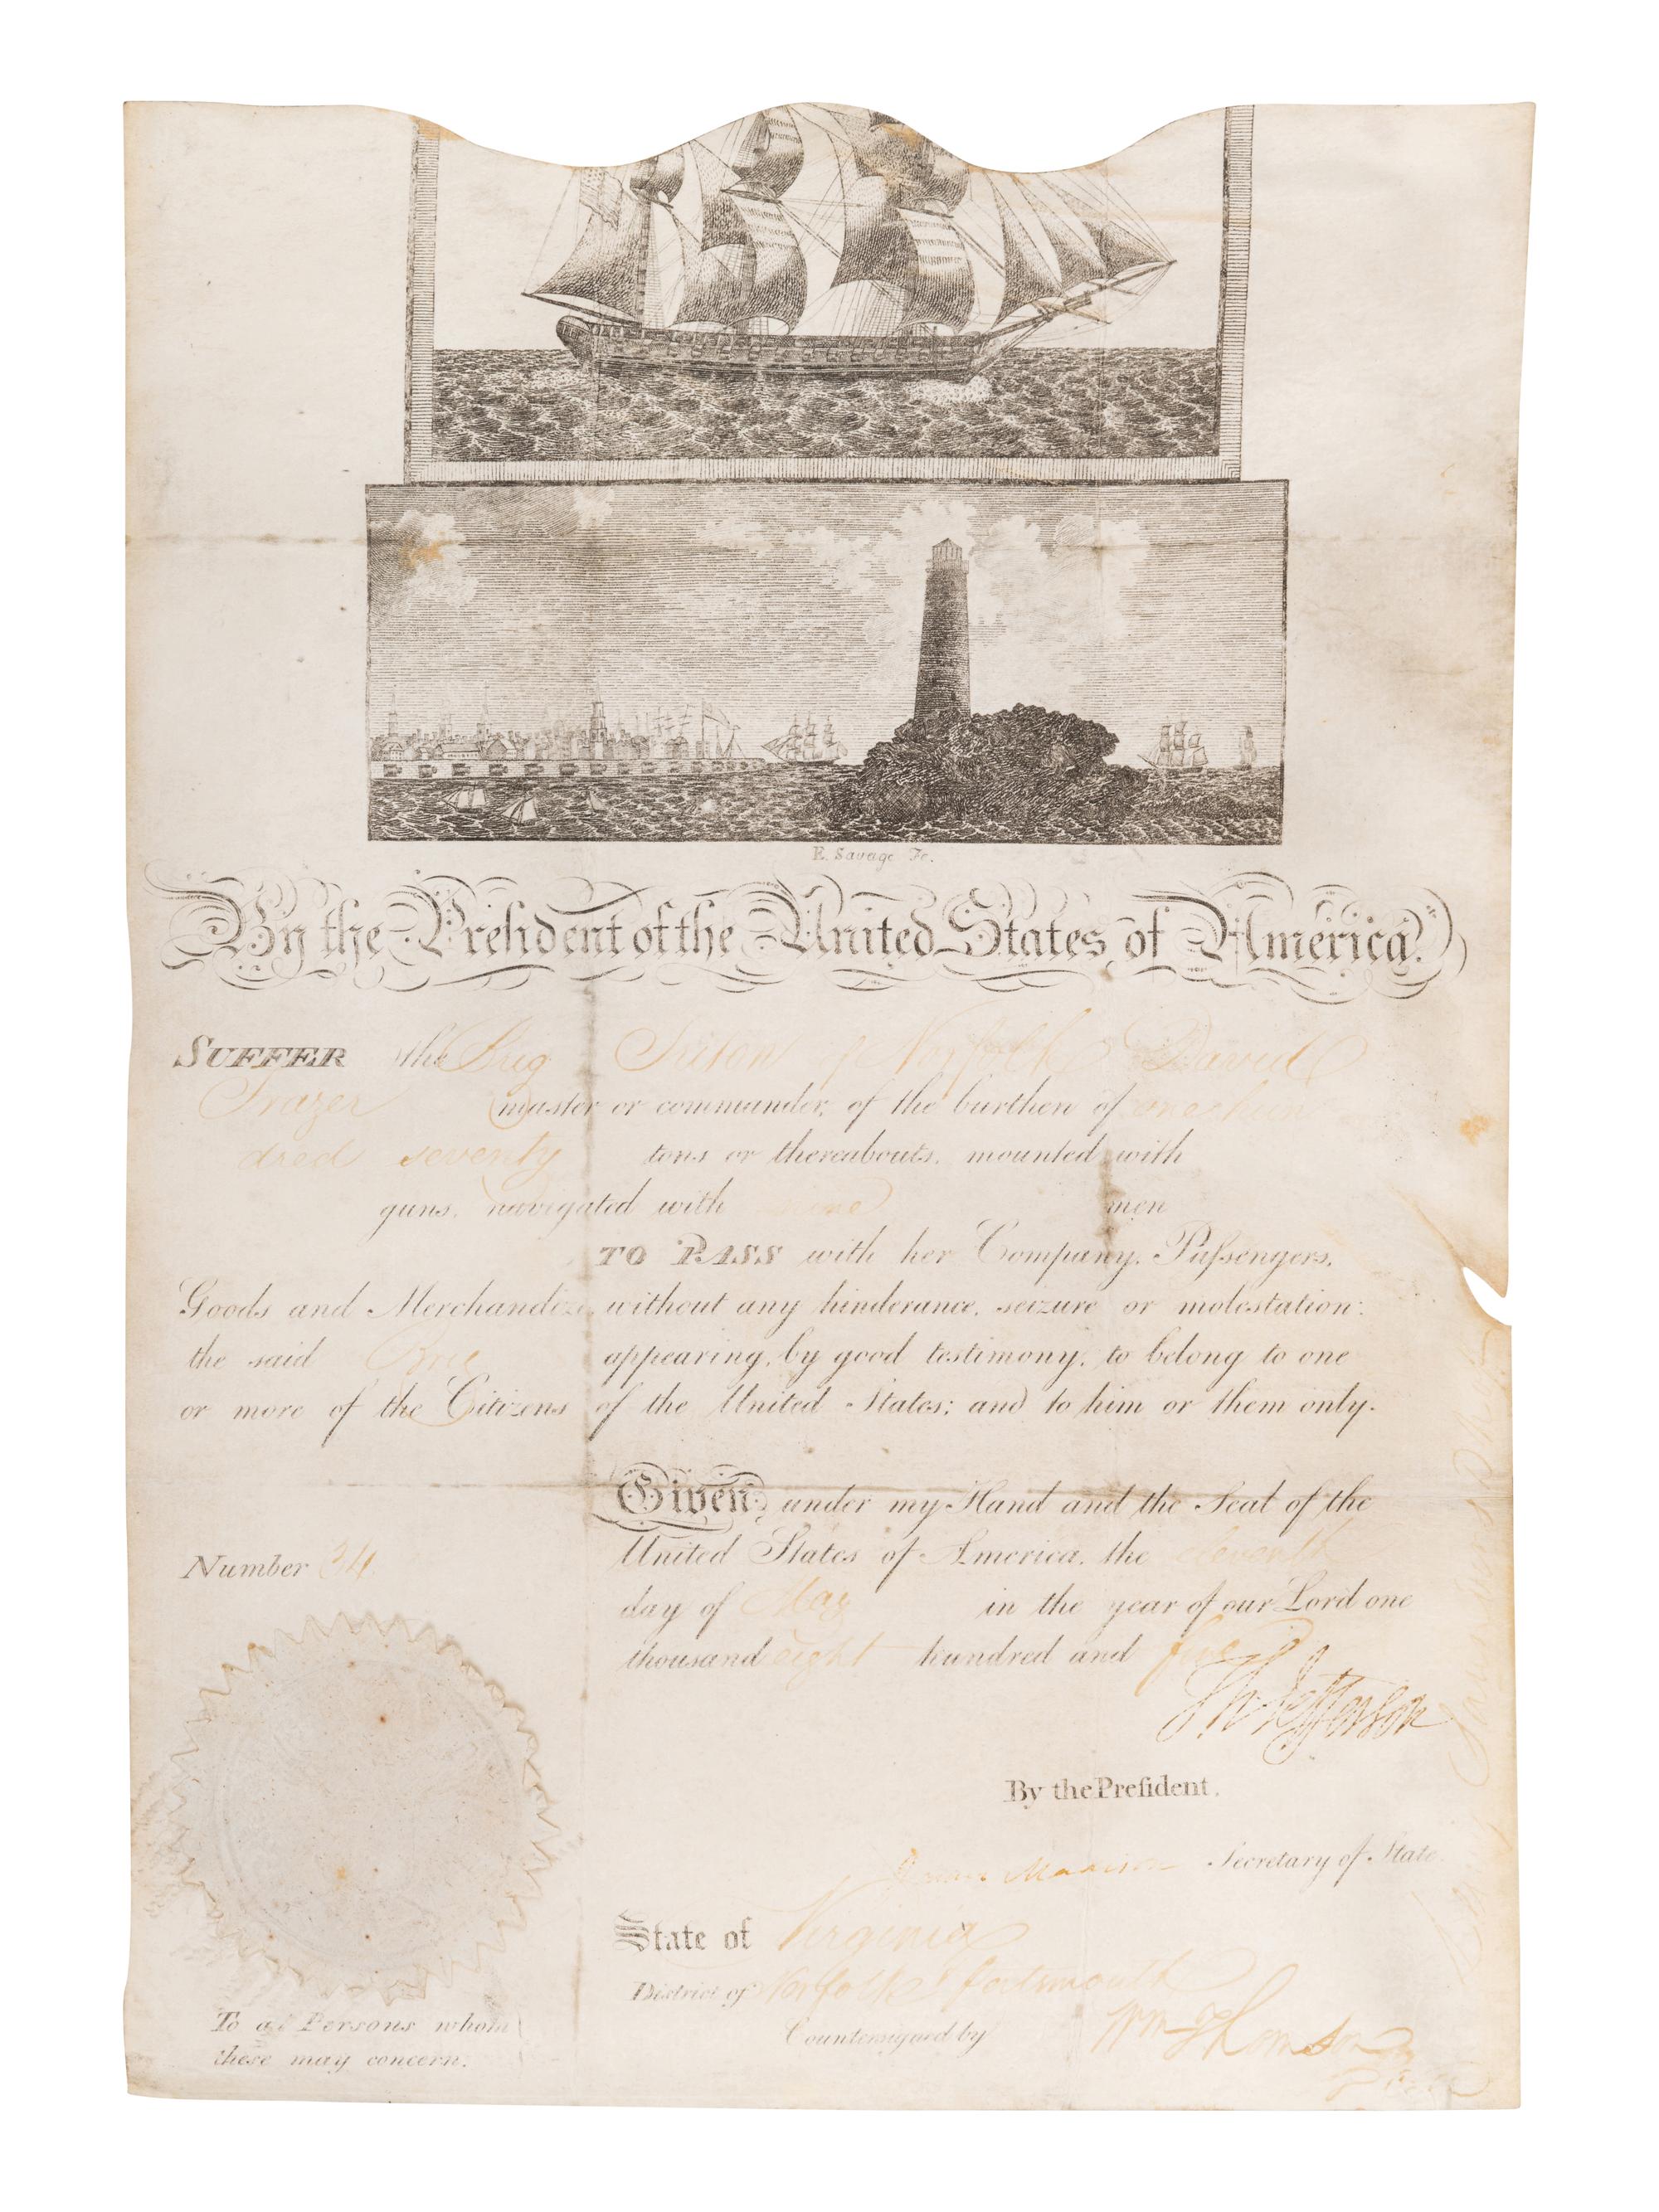 E. Savage Fc.
By the Preſident of the United States of America.
SUFFER the Brig of Norfolk David
Frazer master or commander, of the burthen of one
dred seventy tons or thereabouts, mounted with
guns, navigated with nine men
TO PASS with her Company, Paſsengers,
Goods and Merchandize without any hinderance, seizure or molestation:
the said Brig appearing, by good testimony, to belong to one
or more of the Citizens of the United States; and to him or them only.
Given under my Hand and the Seal of the
United States of America, the eleventh
Number 34
day of May in the year of our Lord one
thousand eight hundred and five
Th: Jefferson
By the Preſident.
James Madison Secretary of State.
State of Virginia
District of Norfolk & Portsmouth
To all Persons whom
Countersigned by Wm Thomson
these may concern.